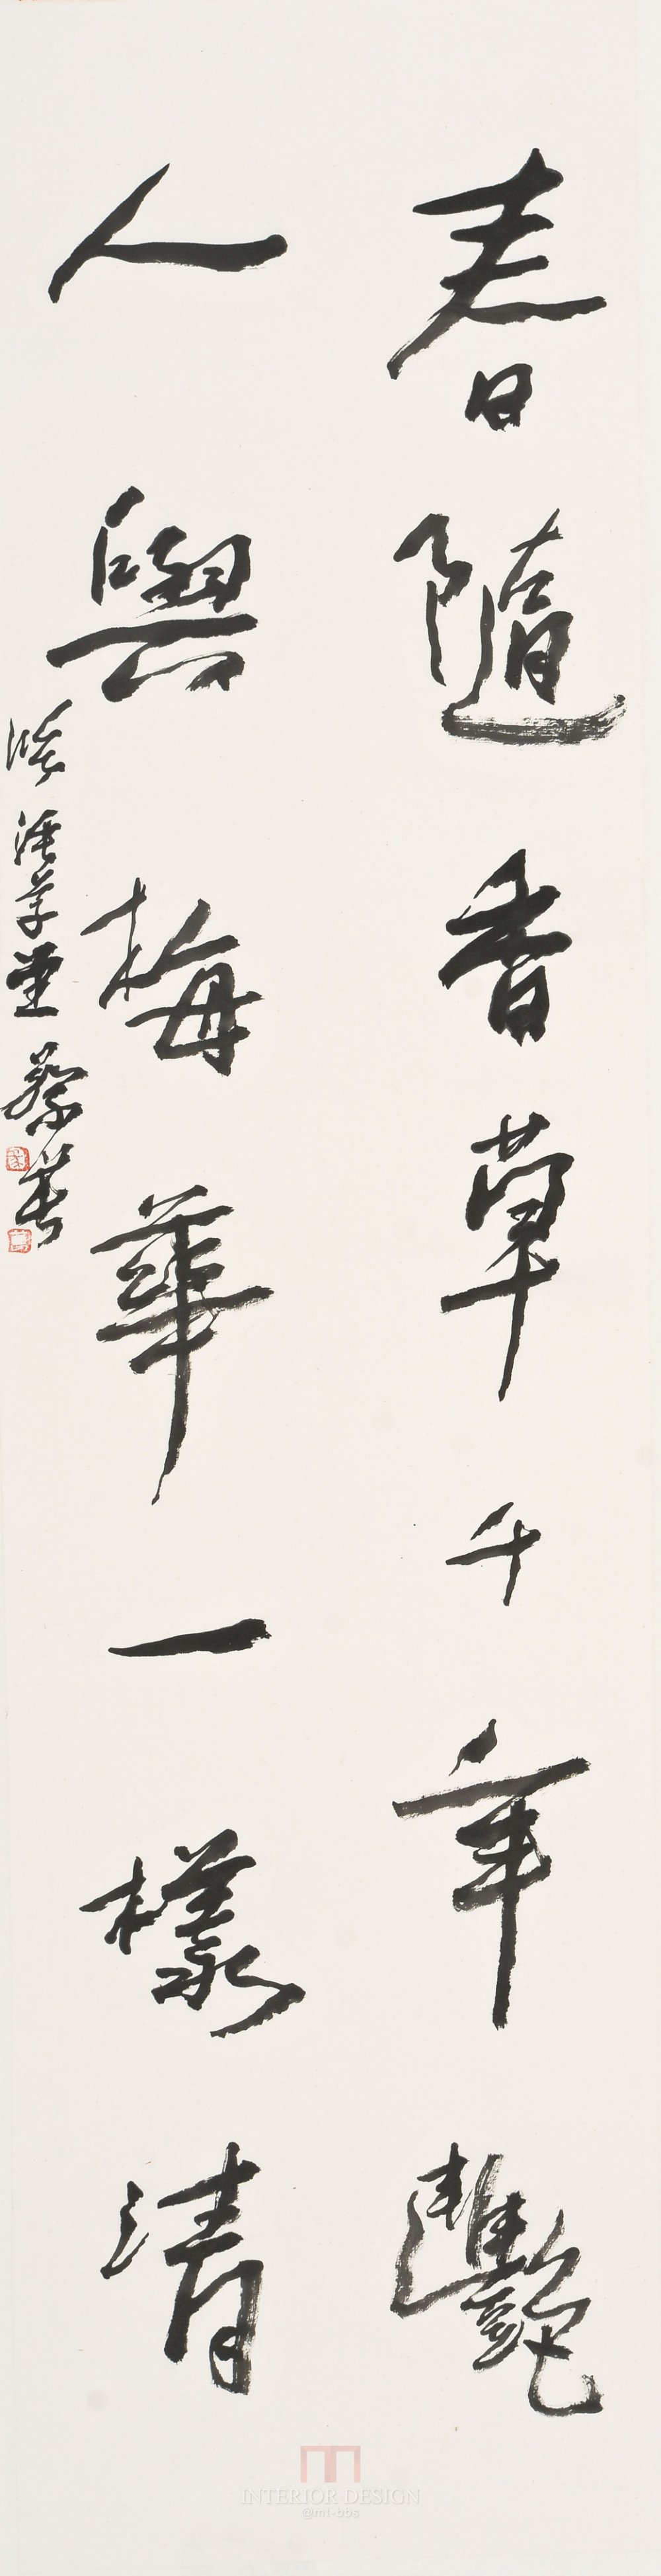 春隨香草千年艷
人與梅華一樣清
草堂
INTERIOR DESIGN
@mt-bbs